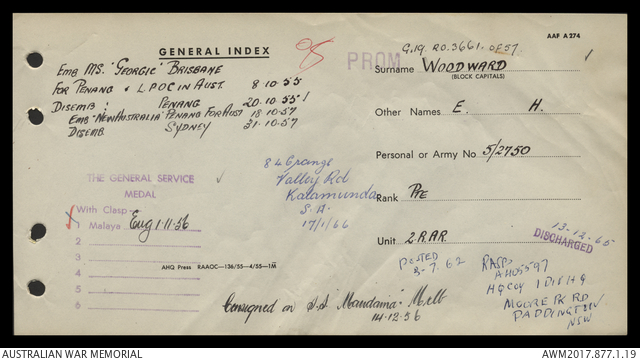 AAF A274
GENERAL INDEX
98
PROM
G.19. RO.3661. OF 57
EMB MS. "GEORGIC" BRISBANE
FOR PENANG & L POC IN AUST. 8-10-55
DISEMB: PENANG 20-10-55
EMB "NEW AUSTRALIA" PENANG FOR AUST 18-10-57
DISEMB SYDNEY 31-10-57
Surname WOODWARD
(BLOCK CAPITALS)
Other Names E. H.
Personal or Army No 5/2750
Rank PTE
Unit 2 RAR
13-12-65
DISCHARGED
84 Grange
Valley Rd
Kalamunda
S.A.
17/1/66
THE GENERAL SERVICE
MEDAL
With Clasp
1 Malaya Eng 1-11-56
2
3
4
5
6
AHQ Press RAAOC—136/55—4/55—1M
POSTED
3-7.62
HQ COY 1 DIV HQ
MOORE PK RD
PADDINGTON
NSW
Consigned on S.S. "Mandama" Melb
14-12-56
AUSTRALIAN WAR MEMORIAL
AWM2017.877.1.19